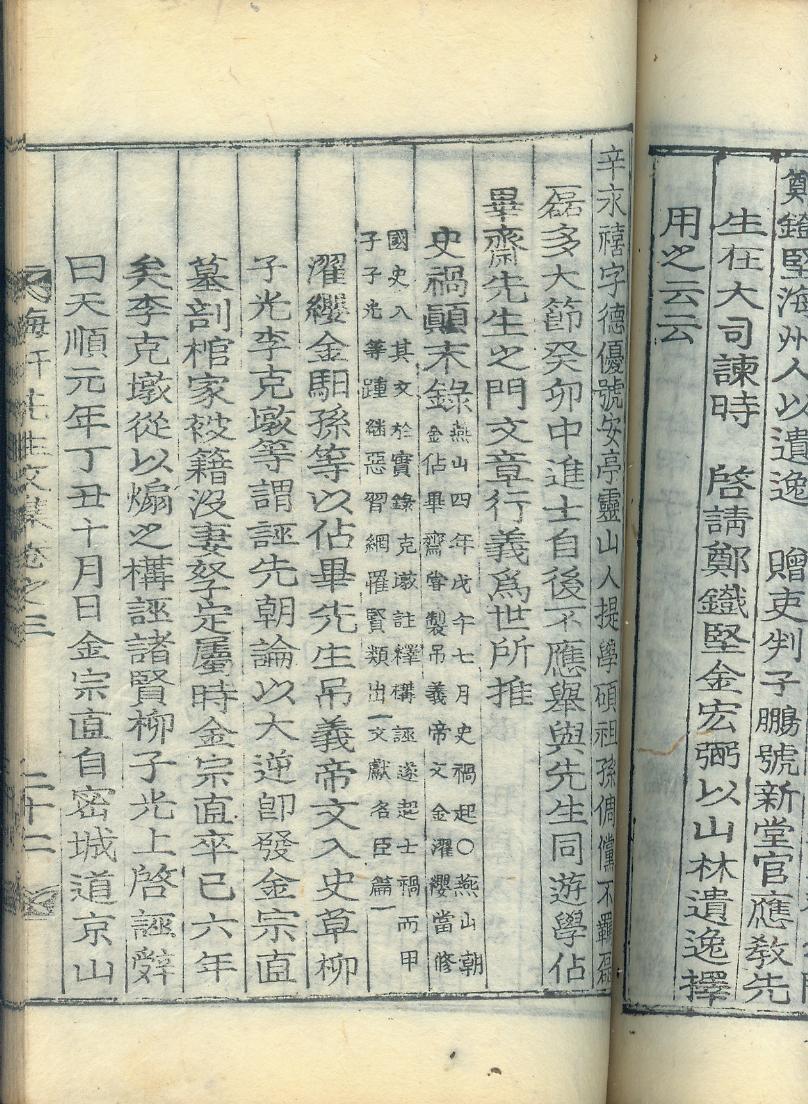 鄭鐵堅海州人以遺逸 贈吏判子鵬號新堂官應敎先
生在大司諫時 啓請鄭鐵堅金宏弼以山林遺逸擇
用之云云
辛永禧字德優號安亭靈山人提學碩祖孫倜儻不羈磊
磊多大節癸卯中進士自後不應舉與先生同遊學佔
畢齋先生之門文章行義爲世所推
史禍顚末錄
燕山四年戊午七月史禍起○燕山朝
金佔畢齋嘗製吊義帝文金濯纓當修
國史入其文於實錄克墩註釋構誣遂起士禍而甲
子子光等踵継惡習網罹賢類出文獻名臣篇
濯纓金馹孫等以佔畢先生吊義帝文入史草柳
子光李克墩等謂誣先朝論以大逆卽發金宗直
墓剖棺家被籍沒妻孥定屬時金宗直卒已六年
矣李克墩從以煽之構誣諸賢柳子光上啓誣辭
曰天順元年丁丑十月日金宗直自密城道京山
海軒先生文集卷之三 二十二